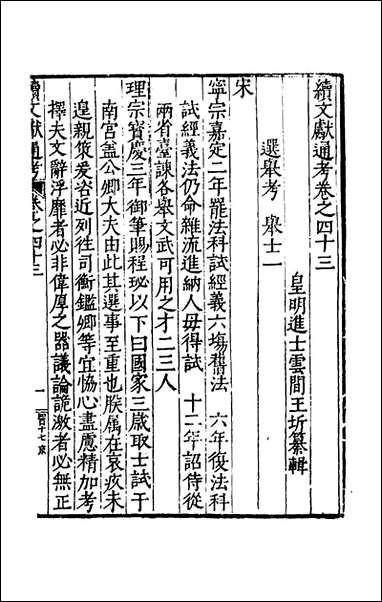 續文獻通考卷之四十三
皇明進士雲間王圻纂輯
選舉考 舉士一
宋
寧宗嘉定二年罷法科試經義六塲舊法 六年復法科
試經義法仍命雜流進納人毋得試 十二年詔侍從
兩省臺諫各舉文武可用之才二三人
理宗寶慶三年御筆賜程珌以下曰國家三歲取士試于
南宮盖公卿大夫由此其選事至重也朕属在哀疚未
皇親策爰咨近列往司衡鑑卿等宜恊心盡慮精加考
擇夫文辭浮靡者必非偉厚之器議論詭激者必無正
續文獻通考 卷之四十三
一